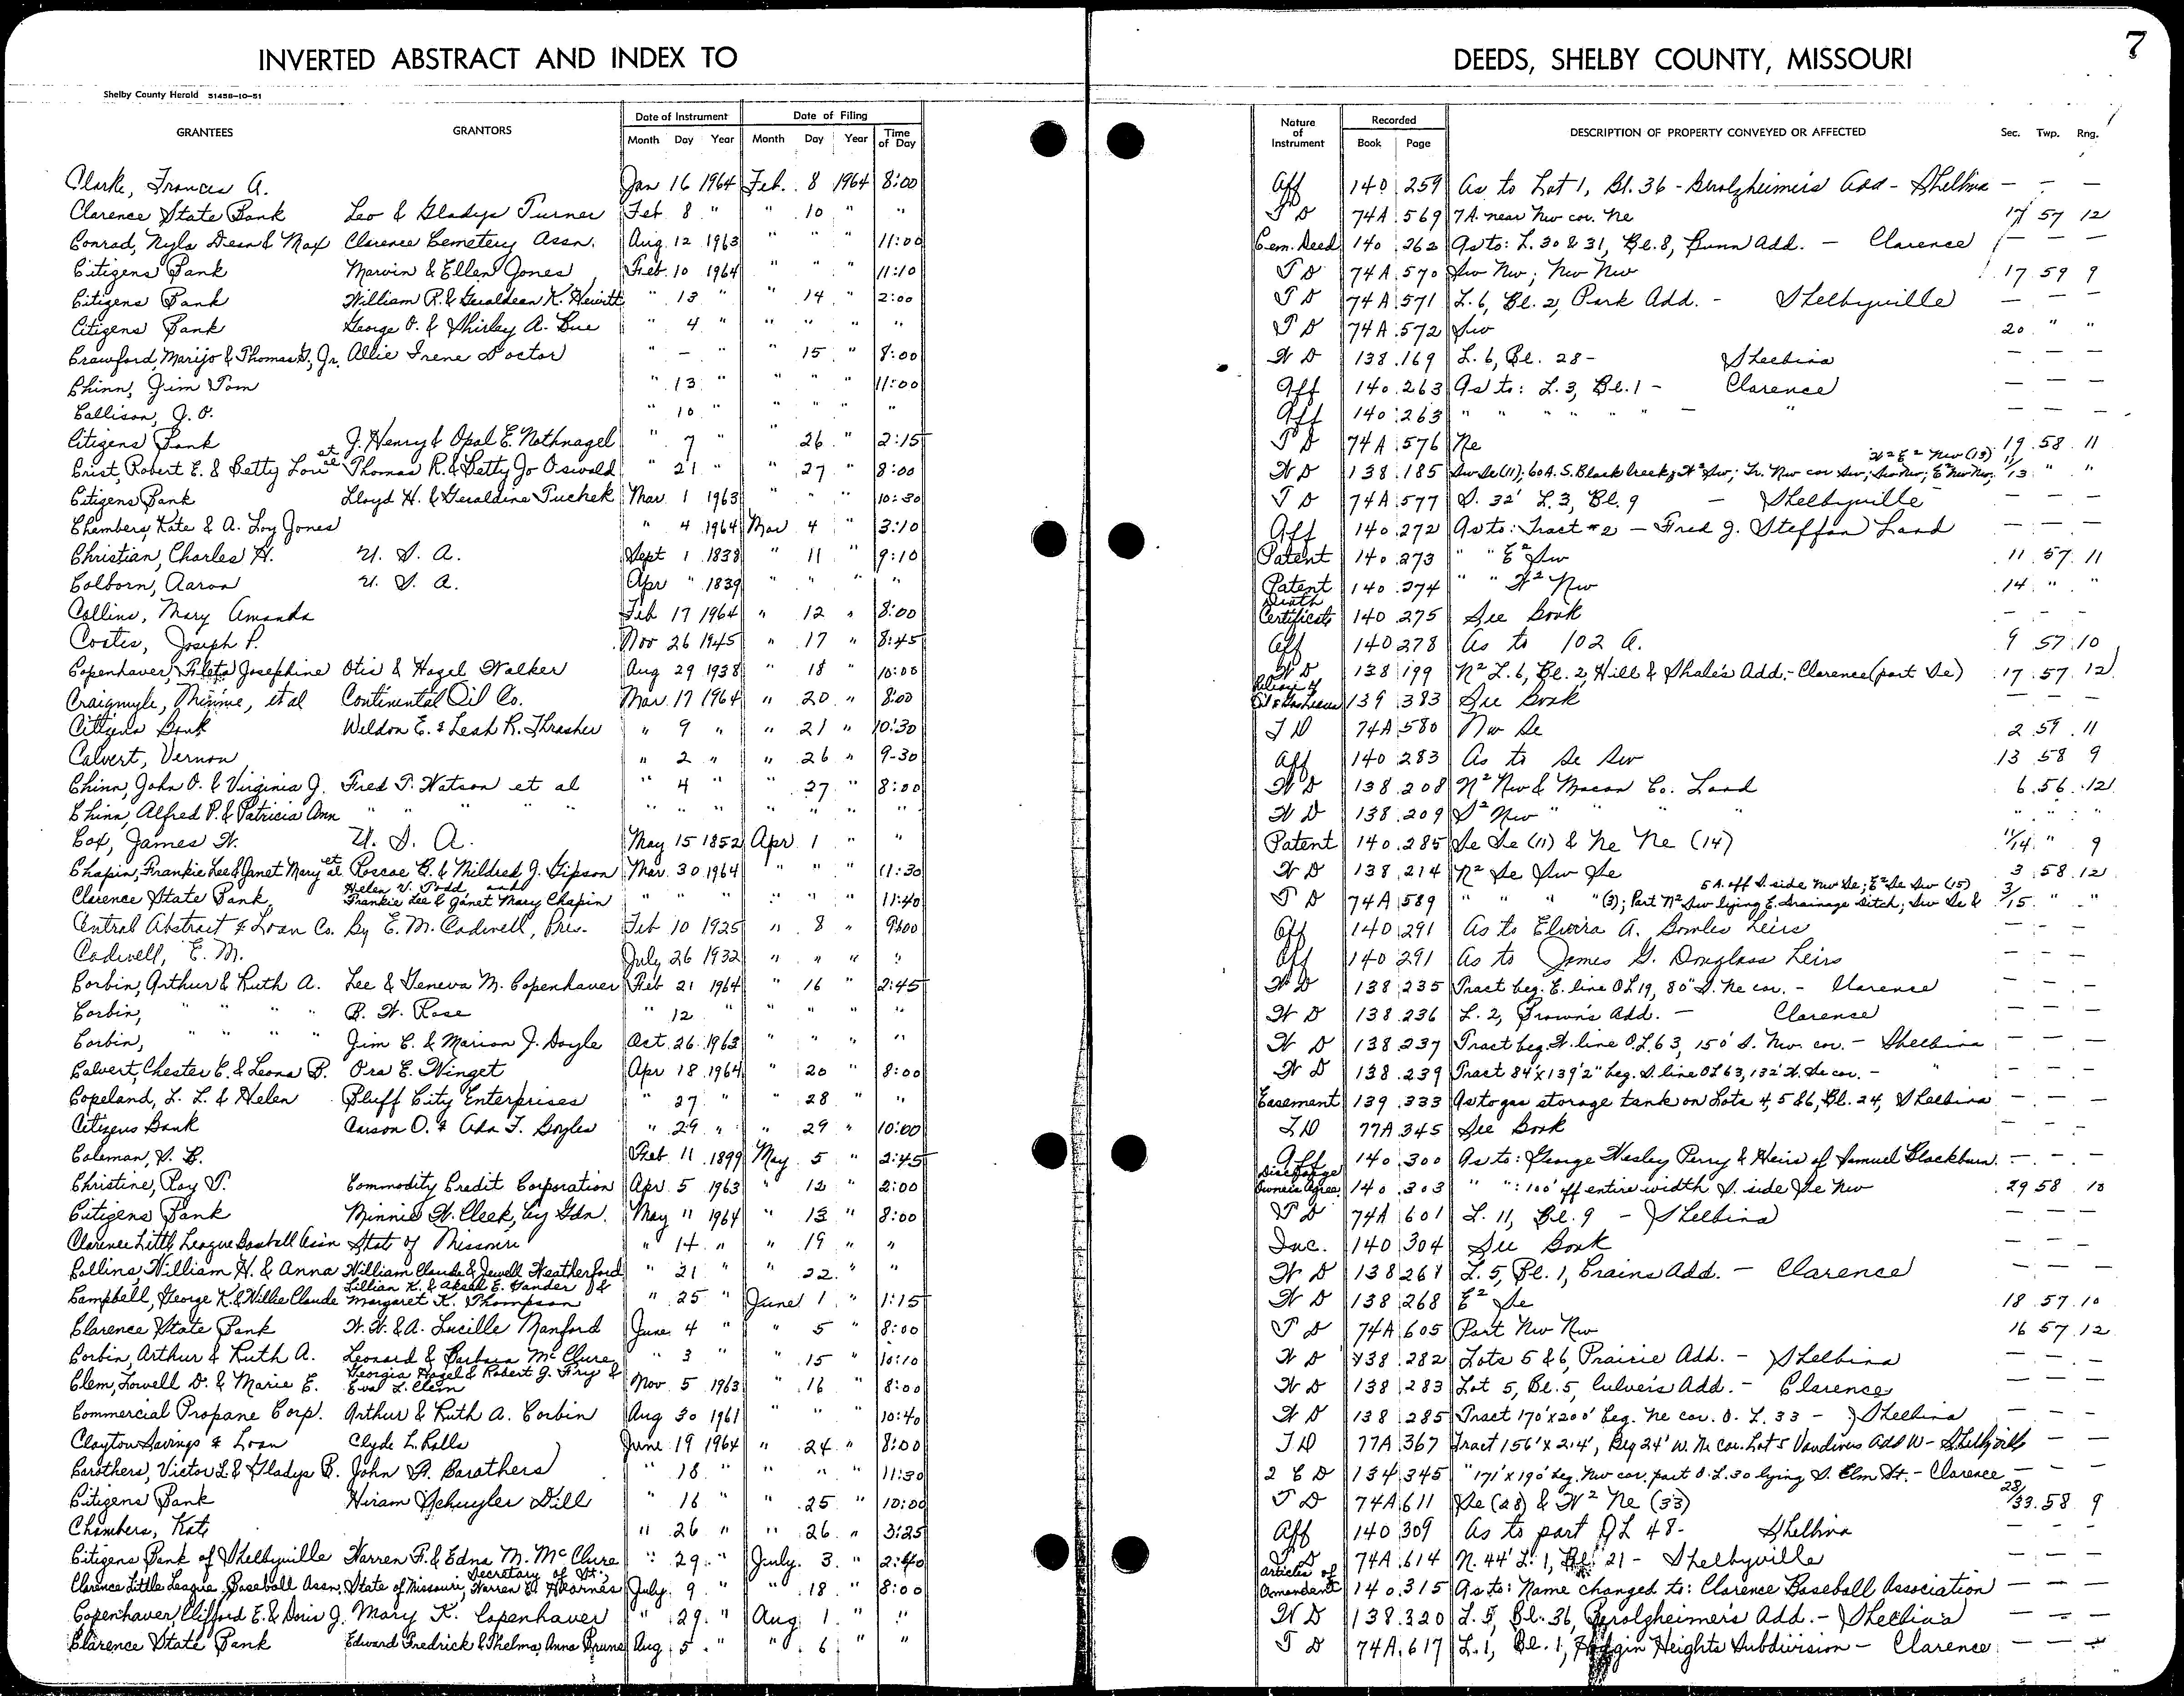 7
INVERTED ABSTRACT AND INDEX TO DEEDS, SHELBY COUNTY, MISSOURI
Shelby County Herald 51458-10-51
GRANTEES GRANTORS Date of Instrument Month Day Year Date of Filing Month Day Year Time of Day Nature of Instrument Recorded Book Page DESCRIPTION OF PROPERTY CONVEYED OR AFFECTED Sec. Twp. Rng.
Clarke, Frances A. Jan 16 1964 Feb. 8 1964 8:00 Aff 140 259 As to Lot 1, Bl. 36 - Gerolzheimer's Add - Shelbina — — —
Clarence State Bank Leo & Gladys Turner Feb 8 " " 10 " " T D 74A 569 7A. near Nw cor. Ne 17 57 12
Conrad, Nyla Dean & Max Clarence Cemetery Assn. Aug. 12 1963 " " " 11:00 Cem. Deed 140 262 As to: L. 30 & 31, Bl. 8, Bunn Add. — Clarence — —
Citizens Bank Marvin & Ellen Jones Feb. 10 1964 " " " 11:10 T D 74A 570 Sw Nw; Nw Nw 17 59 9
Citizens Bank William R. & Geraldean K. Hewitt " 13 " " 14 " 2:00 T D 74A 571 L. 6, Bl. 2, Park Add. - Shelbyville — — —
Citizens Bank George O. & Shirley A. Bue " 4 " " " " " T D 74A 572 Sw 20 " "
Crawford, Marijo & Thomas G., Jr. Allie Irene Doctor " — " " 15 " 8:00 W D 138 169 L. 6, Bl. 28 - Shelbina — — —
Chinn, Jim Tom " 13 " " " " 11:00 Aff 140 263 As to: L. 3, Bl. 1 - Clarence — — —
Callison, J. O. " 10 " " " " " Aff 140 263 " " " " " " — " — — —
Citizens Bank J. Henry & Opal E. Nothnagel " 7 " " 26 " 2:15 T D 74A 576 Ne 19 58 11
Crist, Robert E. & Betty Lou et al Thomas R. & Betty Jo Oswald " 21 " " 27 " 8:00 W D 138 185 Sw Se (11); 60 A. S. Black Creek; W² Sw; Tr. Nw cor Sw; Sw Nw; E² Nw Nw; W² E² Nw (13) 11/13 " "
Citizens Bank Lloyd H. & Geraldine Puchek Mar. 1 1963 " " " 10:30 T D 74A 577 S. 32' L. 3, Bl. 9 — Shelbyville — — —
Chambers, Kate & A. Loy Jones " 4 1964 Mar 4 " 3:10 Aff 140 272 As to: Tract #2 — Fred J. Steffan Land — — —
Christian, Charles H. U. S. A. Sept 1 1838 " 11 " 9:10 Patent 140 273 " " E² Sw 11 57 11
Colborn, Aaron U. S. A. Apr " 1839 " " " " Patent 140 274 " " W² Nw 14 " "
Collins, Mary Amanda Feb 17 1964 " 12 " 8:00 Death Certificate 140 275 See Book — — —
Coates, Joseph P. Nov 26 1945 " 17 " 8:45 Aff 140 278 As to 102 A. 9 57 10
Copenhaver, Fleta Josephine Otis & Hazel Walker Aug 29 1938 " 18 " 10:00 W D 138 199 N² L. 6, Bl. 2, Hill & Shale's Add. - Clarence (part Se) 17 57 12
Craigmyle, Minnie, et al Continental Oil Co. Mar. 17 1964 " 20 " 8:00 Release of Oil & Gas Lease 139 383 See Book — — —
Citizens Bank Weldon E. & Leah R. Thrasher " 9 " " 21 " 10:30 T D 74A 580 Nw Se 2 59 11
Calvert, Vernon " 2 " " 26 " 9-30 Aff 140 283 As to Se Sw 13 58 9
Chinn, John O. & Virginia J. Fred P. Watson et al " 4 " " 27 " 8:00 W D 138 208 N² Nw & Macon Co. Land 6 56 12
Chinn, Alfred P. & Patricia Ann " " " " " " " " " " " W D 138 209 S² Nw " " " " " "
Cox, James W. U. S. A. May 15 1852 Apr. 1 " " Patent 140 285 Se Se (11) & Ne Ne (14) 11/14 " 9
Chapin, Frankie Lee & Janet Mary et al Roscoe C. & Mildred J. Gipson Mar. 30 1964 " " " 11:30 W D 138 214 N² Se Sw Se 3 58 12
Clarence State Bank Helen V. Todd, and Frankie Lee & Janet Mary Chapin " " " " " " 11:40 T D 74A 589 " " " " (3); Part N² Sw lying E. Drainage Ditch; Sw Se & 5 A. off S. side Nw Se; E² Se Sw (15) 3/15 " "
Central Abstract & Loan Co. By E. M. Cadwell, Pres. Feb 10 1925 " 8 " 9:00 Aff 140 291 As to Elvira A. Bowles heirs — — —
Cadwell, E. M. July 26 1932 " " " " Aff 140 291 As to James G. Douglass heirs — — —
Corbin, Arthur & Ruth A. Lee & Geneva M. Copenhaver Feb 21 1964 " 16 " 2:45 W D 138 235 Tract beg. E. line OL 19, 80" S. Ne cor. - Clarence — — —
Corbin, " " " " B. W. Rose " 12 " " " " " W D 138 236 L. 2, Brown's Add. — Clarence — — —
Corbin, " " " " Jim C. & Marion J. Doyle Oct. 26 1963 " " " " W D 138 237 Tract beg. W. line O.L. 63, 150' S. Nw. cor. - Shelbina — — —
Calvert, Chester C. & Leona B. Ora E. Winget Apr 18 1964 " 20 " 8:00 W D 138 239 Tract 84' x 139'2" beg. S. line OL 63, 132' W. Se cor. - " — — —
Copeland, L. L. & Helen Bluff City Enterprises " 27 " " 28 " " Easement 139 333 As to gas storage tank on Lots 4, 5 & 6, Bl. 24, Shelbina — — —
Citizens Bank Carson O. & Ada F. Boyles " 29 " " 29 " 10:00 T D 77A 345 See Book — — —
Coleman, S. B. Feb 11 1899 May 5 " 2:45 Aff 140 300 As to: George Wesley Perry & Heirs of Samuel Blackburn. — — —
Christine, Roy T. Commodity Credit Corporation Apr. 5 1963 " 12 " 2:00 Owners Agree. 140 303 " " : 100' off entire width S. side Se Nw 29 58 10
Citizens Bank Minnie W. Cleek, by Gdn. May 11 1964 " 13 " 8:00 T D 74A 601 L. 11, Bl. 9 - Shelbina — — —
Clarence Little League Baseball Assn State of Missouri " 14 " " 19 " " Inc. 140 304 See Book — — —
Collins, William H. & Anna William Claude & Jewell Weatherford " 21 " " 22 " " W D 138 261 L. 5, Bl. 1, Crains Add. — Clarence — — —
Campbell, George K. & Willie Claude Lillian K. & Aksel E. Sander & Margaret K. Thompson " 25 " June 1 " 1:15 W D 138 268 E² Se 18 57 10
Clarence State Bank W. W. & A. Lucille Manford June 4 " " 5 " 8:00 T D 74A 605 Part Nw Nw 16 57 12
Corbin, Arthur & Ruth A. Leonard & Barbara McClure " 3 " " 15 " 10:10 W D 138 282 Lots 5 & 6, Prairie Add. — Shelbina — — —
Clem, Lowell D. & Marie E. Georgia Hazel & Robert J. Fry & Eval L. Clem Nov 5 1963 " 16 " 8:00 W D 138 283 Lot 5, Bl. 5, Culver's Add. - Clarence — — —
Commercial Propane Corp. Arthur & Ruth A. Corbin Aug 30 1961 " " " 10:40 W D 138 285 Tract 170' x 200' beg. Ne cor. O. L. 33 - Shelbina — — —
Clayton Savings & Loan Clyde L. Ralls June 19 1964 " 24 " 8:00 T D 77A 367 Tract 156' x 214', Beg 24' W. Ne cor. Lot 5 Vandivers Add W - Shelbyville — — —
Carothers, Victor L. & Gladys B. John A. Carothers " 18 " " " " 11:30 2 C D 134 345 " 171' x 190' beg. Nw cor. part O. L. 30 lying S. Elm St. - Clarence — — —
Citizens Bank Hiram Schuyler Dill " 16 " " 25 " 10:00 T D 74A 611 Se (28) & W² Ne (33) 28/33 58 9
Chambers, Kate " 26 " " 26 " 3:25 Aff 140 309 As to part OL 48 - Shelbina — — —
Citizens Bank of Shelbyville Warren F. & Edna M. McClure " 29 " July 3 " 2:40 T D 74A 614 N. 44' L. 1, Bl. 21 - Shelbyville — — —
Clarence Little League Baseball Assn. State of Missouri, Warren E. Hearnes Secretary of St. July 9 " " 18 " 8:00 Articles of Amendment 140 315 As to: Name changed to: Clarence Baseball Association — — —
Copenhaver, Clifford E. & Doris J. Mary K. Copenhaver " 29 " Aug 1 " " W D 138 320 L. 5, Bl. 36, Gerolzheimer's Add. - Shelbina — — —
Clarence State Bank Edward Fredrick & Thelma Anna Prune Aug 5 " " 6 " " T D 74A 617 L. 1, Bl. 1, Heights Subdivision — Clarence — — —